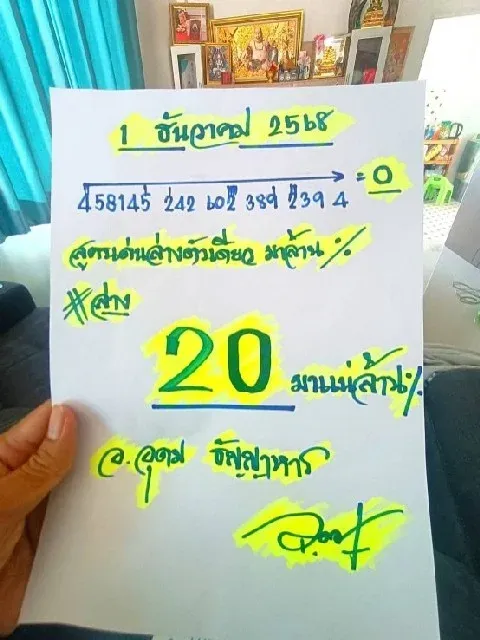 1 ธันวาคม 2568
458145 242 602 389 239 4 = 0
สูตรเด่นล่างตัวเดียว มาล้าน %
#ล่าง
20 มาแน่ล้าน %
อ. อุดม ธัญญาหาร